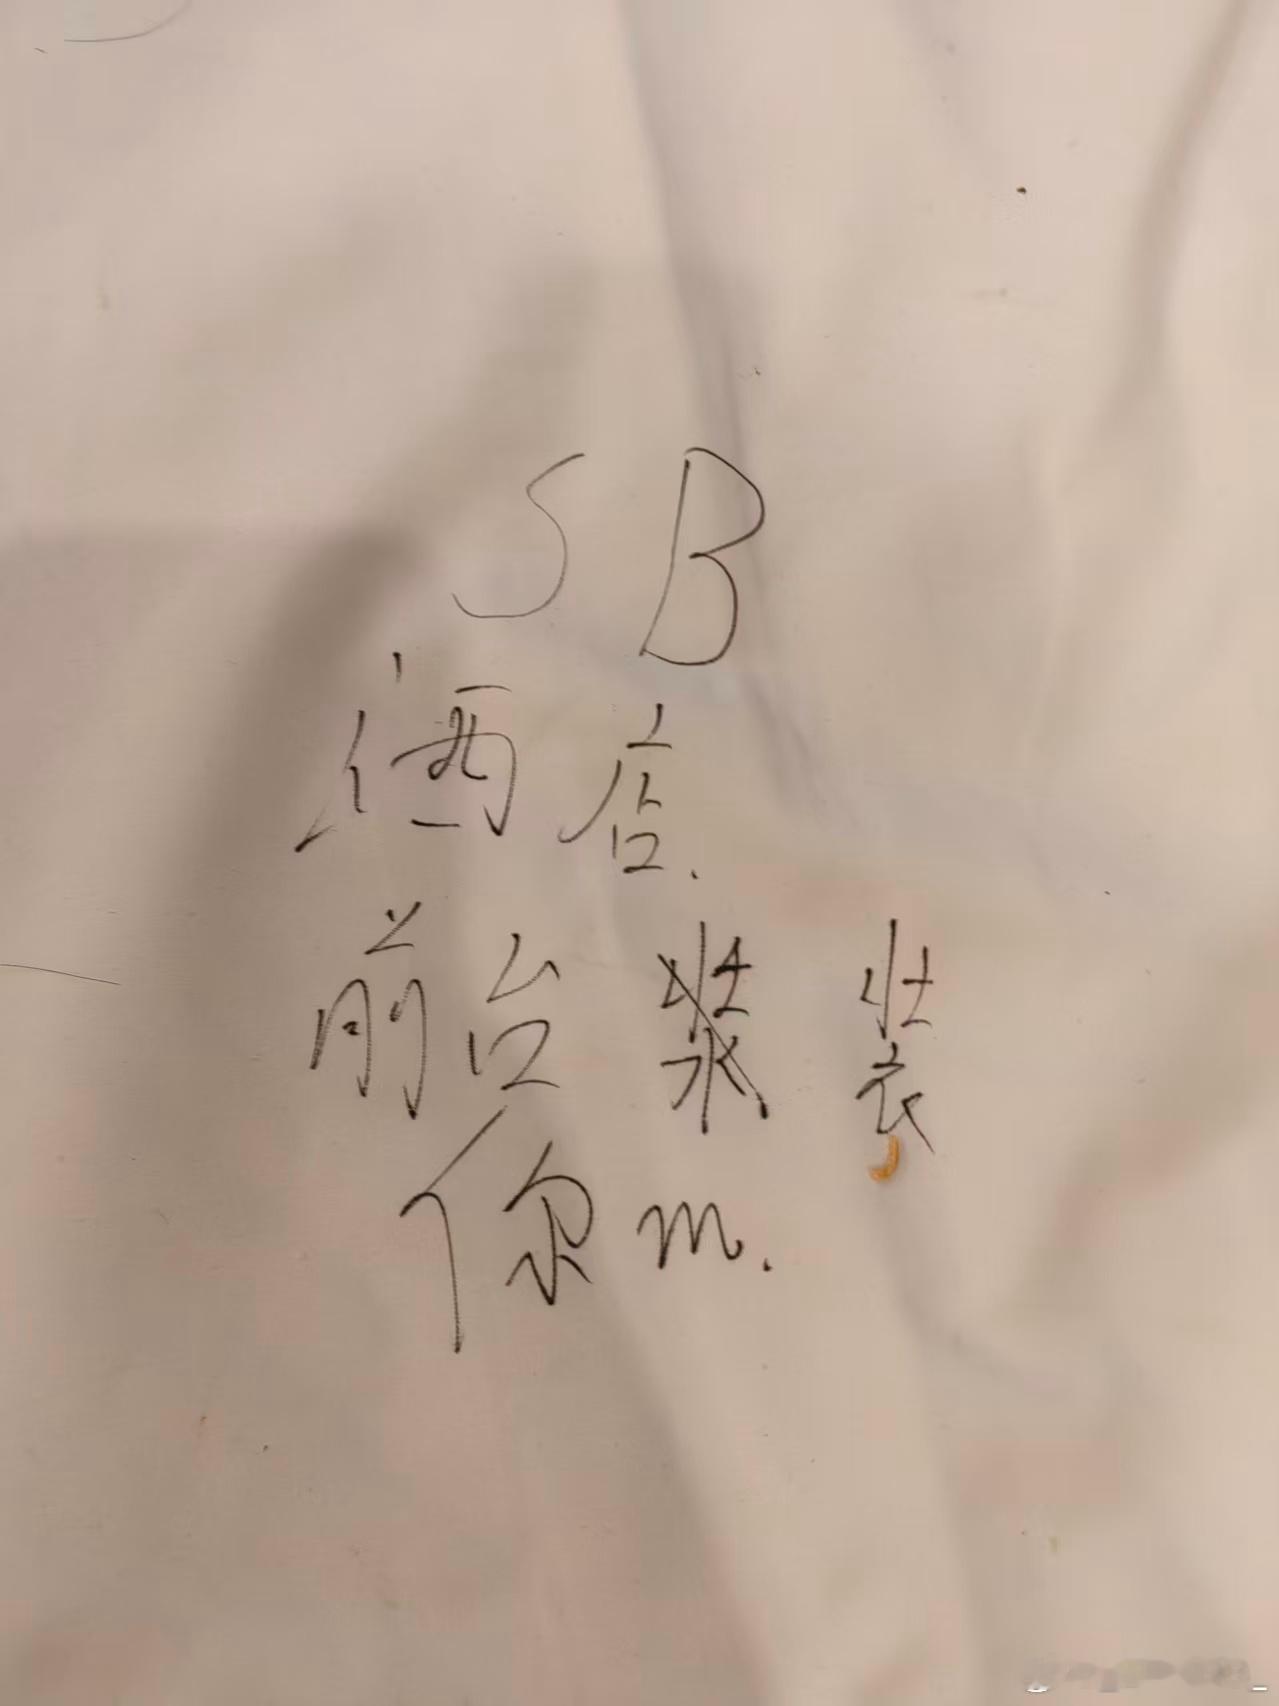 SB
酒店.
前台装
你m.